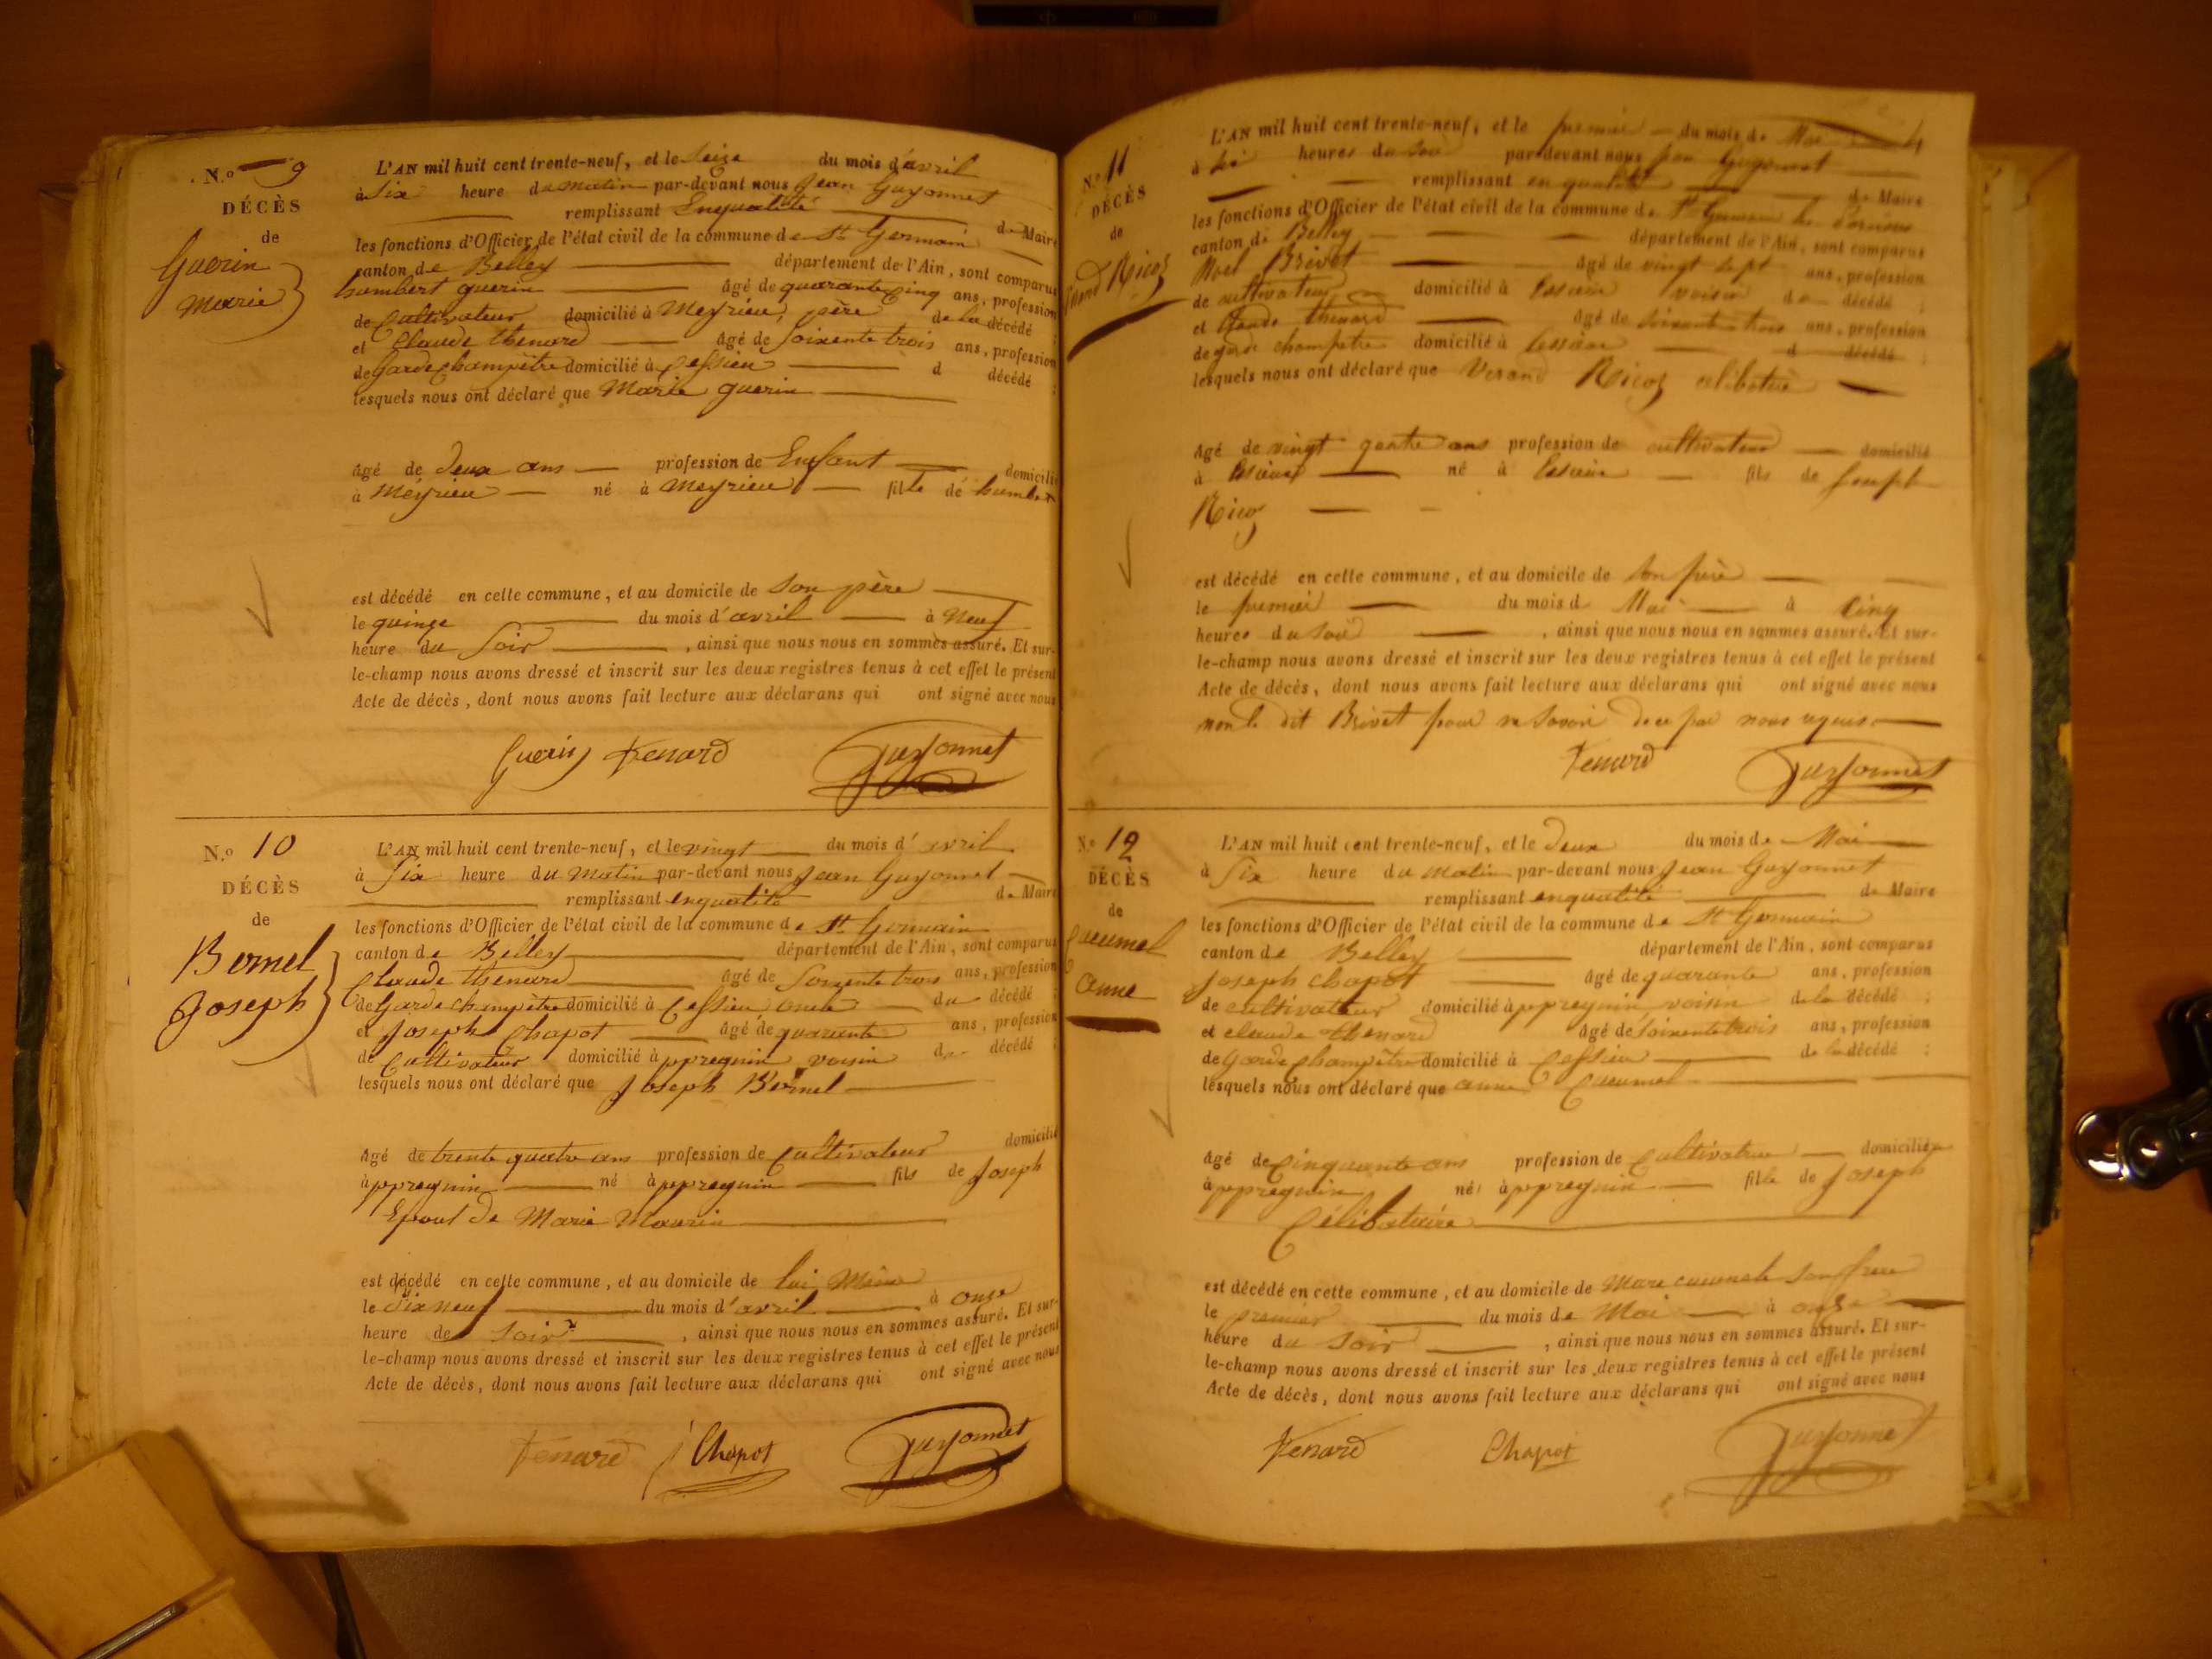 N.o 9
DÉCÈS
de
Guerin
Marie
L'AN mil huit cent trente-neuf, et le Seize du mois d'avril
à Six heure du matin par-devant nous Jean Guyonnet
remplissant Enqualité de Maire
les fonctions d'Officier de l'état civil de la commune de St Germain
canton de Belley département de l'Ain, sont comparus
humbert guerin âgé de quarante cinq ans, profession
de Cultivateur domicilié à Meyrieu, père de la décédé ;
et Claude thenard âgé de Soixente trois ans, profession
de Garde Champêtre domicilié à Cessieu d décédé ;
lesquels nous ont déclaré que Marie guerin
âgé de deux ans profession de Enfant domicilié
à Meyrieu né à Meyrieu fille de humbert
est décédé en cette commune, et au domicile de Son père
le quinze du mois d'avril à Neuf
heure du Soir, ainsi que nous nous en sommes assuré. Et sur-
le-champ nous avons dressé et inscrit sur les deux registres tenus à cet effet le présent
Acte de décès, dont nous avons fait lecture aux déclarans qui ont signé avec nous
Guerin Tenard Guyonnet
N.o 10
DÉCÈS
de
Bernel
Joseph
L'AN mil huit cent trente-neuf, et le vingt du mois d'avril
à Six heure du Matin par-devant nous Jean Guyonnet
remplissant enqualité de Maire
les fonctions d'Officier de l'état civil de la commune de St Germain
canton de Belley département de l'Ain, sont comparus
Claude thenard âgé de Soixente trois ans, profession
de Garde champêtre domicilié à Cessieu oncle du décédé ;
et Joseph Chapot âgé de quarante ans, profession
de Cultivateur domicilié à appregnin voisin du décédé ;
lesquels nous ont déclaré que Joseph Bernel
âgé de trente quatre ans profession de Cultivateur domicilié
à appregnin né à appregnin fils de Joseph
Epout de Marie Maurin
est décédé en cette commune, et au domicile de lui Même
le Dix neuf du mois d'avril à onze
heure de Soir, ainsi que nous nous en sommes assuré. Et sur-
le-champ nous avons dressé et inscrit sur les deux registres tenus à cet effet le présent
Acte de décès, dont nous avons fait lecture aux déclarans qui ont signé avec nous
Tenard Chapot Guyonnet
4
N.o 11
DÉCÈS
de
Ricoz
L'AN mil huit cent trente-neuf, et le premier du mois de Mai
à six heures du soir par-devant nous jean Guyonnet
remplissant en qualité de Maire
les fonctions d'Officier de l'état civil de la commune de St Germain les
canton de Belley département de l'Ain, sont comparus
Noel Brivet âgé de vingt sept ans, profession
de cultivateur domicilié à Essieu voisin d décédé ;
et Claude thenard âgé de soixante trois ans, profession
de garde champetre domicilié à Cessieu d décédé ;
lesquels nous ont déclaré que Verand Ricoz célibataire
âgé de vingt quatre ans profession de cultivateur domicilié
à Essieu né à Essieu fils de Joseph
Ricoz
est décédé en cette commune, et au domicile de son père
le premier du mois d Mai à Cinq
heures du soir, ainsi que nous nous en sommes assuré. Et sur-
le-champ nous avons dressé et inscrit sur les deux registres tenus à cet effet le présent
Acte de décès, dont nous avons fait lecture aux déclarans qui ont signé avec nous
non le dit Brivet pour ne savoir de ce par nous requis
Tenard Guyonnet
N.o 12
DÉCÈS
de
Cueumel
Anne
L'AN mil huit cent trente-neuf, et le Deux du mois de Mai
à Six heure du Matin par-devant nous Jean Guyonnet
remplissant enqualité de Maire
les fonctions d'Officier de l'état civil de la commune de St Germain
canton de Belley département de l'Ain, sont comparus
Joseph Chapot âgé de quarante ans, profession
de cultivateur domicilié à appregnin voisin de la décédé ;
et claude thenard âgé de Soixente trois ans, profession
de Garde Champêtre domicilié à Cessieu de la décédé ;
lesquels nous ont déclaré que anne Cueumel
âgé de Cinquante ans profession de Cultivatrice domicilié
à appregnin né à appregnin fille de Joseph
Célibataire
est décédé en cette commune, et au domicile de Marc Son frere
le premier du mois de Mai à onze
heure du Soir, ainsi que nous nous en sommes assuré. Et sur-
le-champ nous avons dressé et inscrit sur les deux registres tenus à cet effet le présent
Acte de décès, dont nous avons fait lecture aux déclarans qui ont signé avec nous
Tenard Chapot Guyonnet